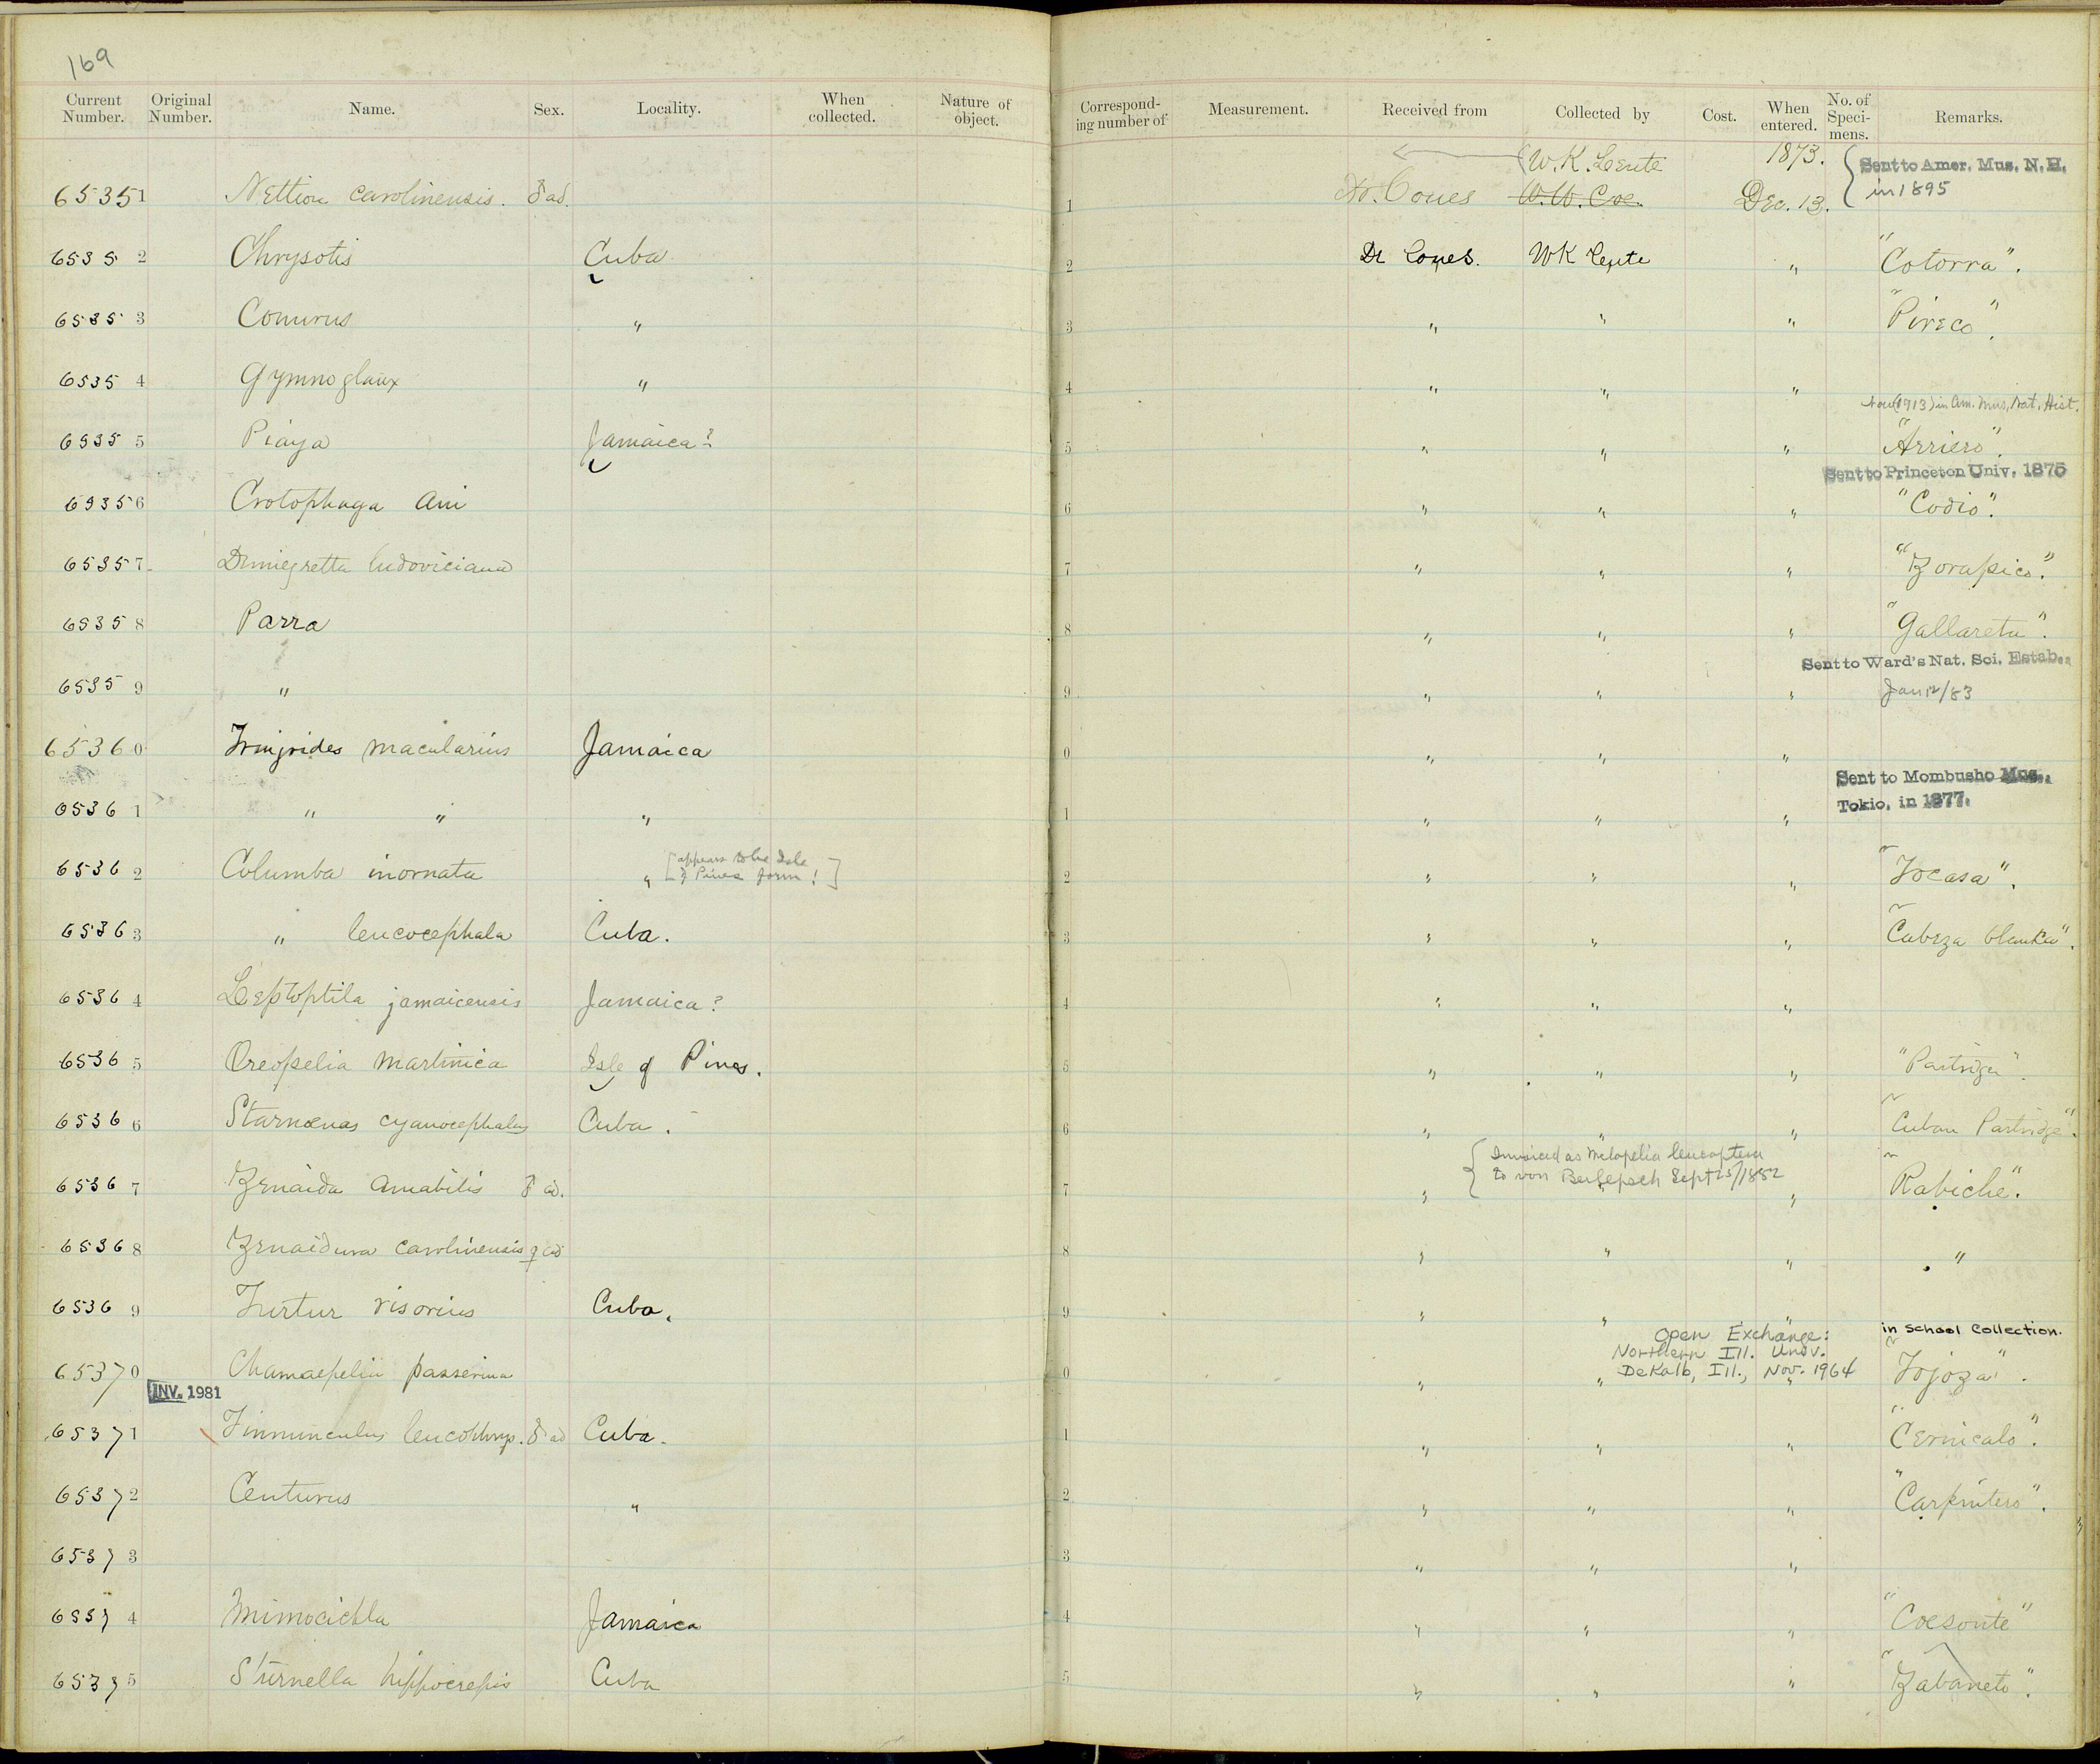 169
Current Number. Original Number. Name. Sex. Locality. When collected. Nature of object. Corresponding number of Measurement. Received from Collected by Cost. When entered. No. of Specimens. Remarks.
65351 Nettion carolinensis. ♂ ad. 1 Dr. Coues W. K. Lente W. W. Coe. 1873. Dec. 13. Sent to Amer. Mus. N. H. in 1895
65352 Chrysotis Cuba 2 Dr Coues. WK Lente " "Cotorra".
65353 Conurus " 3 " " " "Pireco".
65354 Gymnoglaux " 4 " " "
Now (1913) in Am. Mus. Nat. Hist.
65355 Piaya Jamaica? 5 " " " "Arriero".
Sent to Princeton Univ. 1875
65356 Crotophaga Ani 6 " " " "Codio".
65357 Demiegretta ludoviciana 7 " " " "Zorapico".
65358 Parra 8 " " " "Gallareta".
Sent to Ward's Nat. Sci. Estab.
65359 " 9 " " " Jan 12/83
65360 Tringoides macularius Jamaica 0 " " "
Sent to Mombusho Mus. Tokio, in 1877.
65361 " " " 1 " " "
65362 Columba inornata " [appears to be Isle of Pines form!] 2 " " " "Tocasa".
65363 " leucocephala Cuba. 3 " " " "Cabeza blanka".
65364 Leptoptila jamaicensis Jamaica? 4 " " "
65365 Oreopelia martinica Isle of Pines. 5 " " " "Partriza".
65366 Starnœnas cyanocephalus Cuba. 6 " " " "Cuban Partridge".
Invoiced as Melopelia leucoptera to von Berlepsch Sept 25/1882
65367 Zenaida amabilis ♂ ad. 7 " " " "Rabiche".
65368 Zenaidura carolinensis ♀ ad 8 " " " "
65369 Turtur risorius Cuba. 9 " " "
Open Exchange: in School Collection.
Northern Ill. Univ.
DeKalb, Ill., Nov. 1964
65370 Chamaepelia passerina 0 " " " "Tojoza".
INV. 1981
65371 Tinnunculus leucophrys. ♂ ad Cuba. 1 " " " "Cernicalo".
65372 Centurus " 2 " " " "Carpintero".
65373 3 " " "
65374 Mimocichla Jamaica 4 " " " "Coesonte"
65375 Sturnella hippocrepis Cuba 5 " " " "Zabaneto".